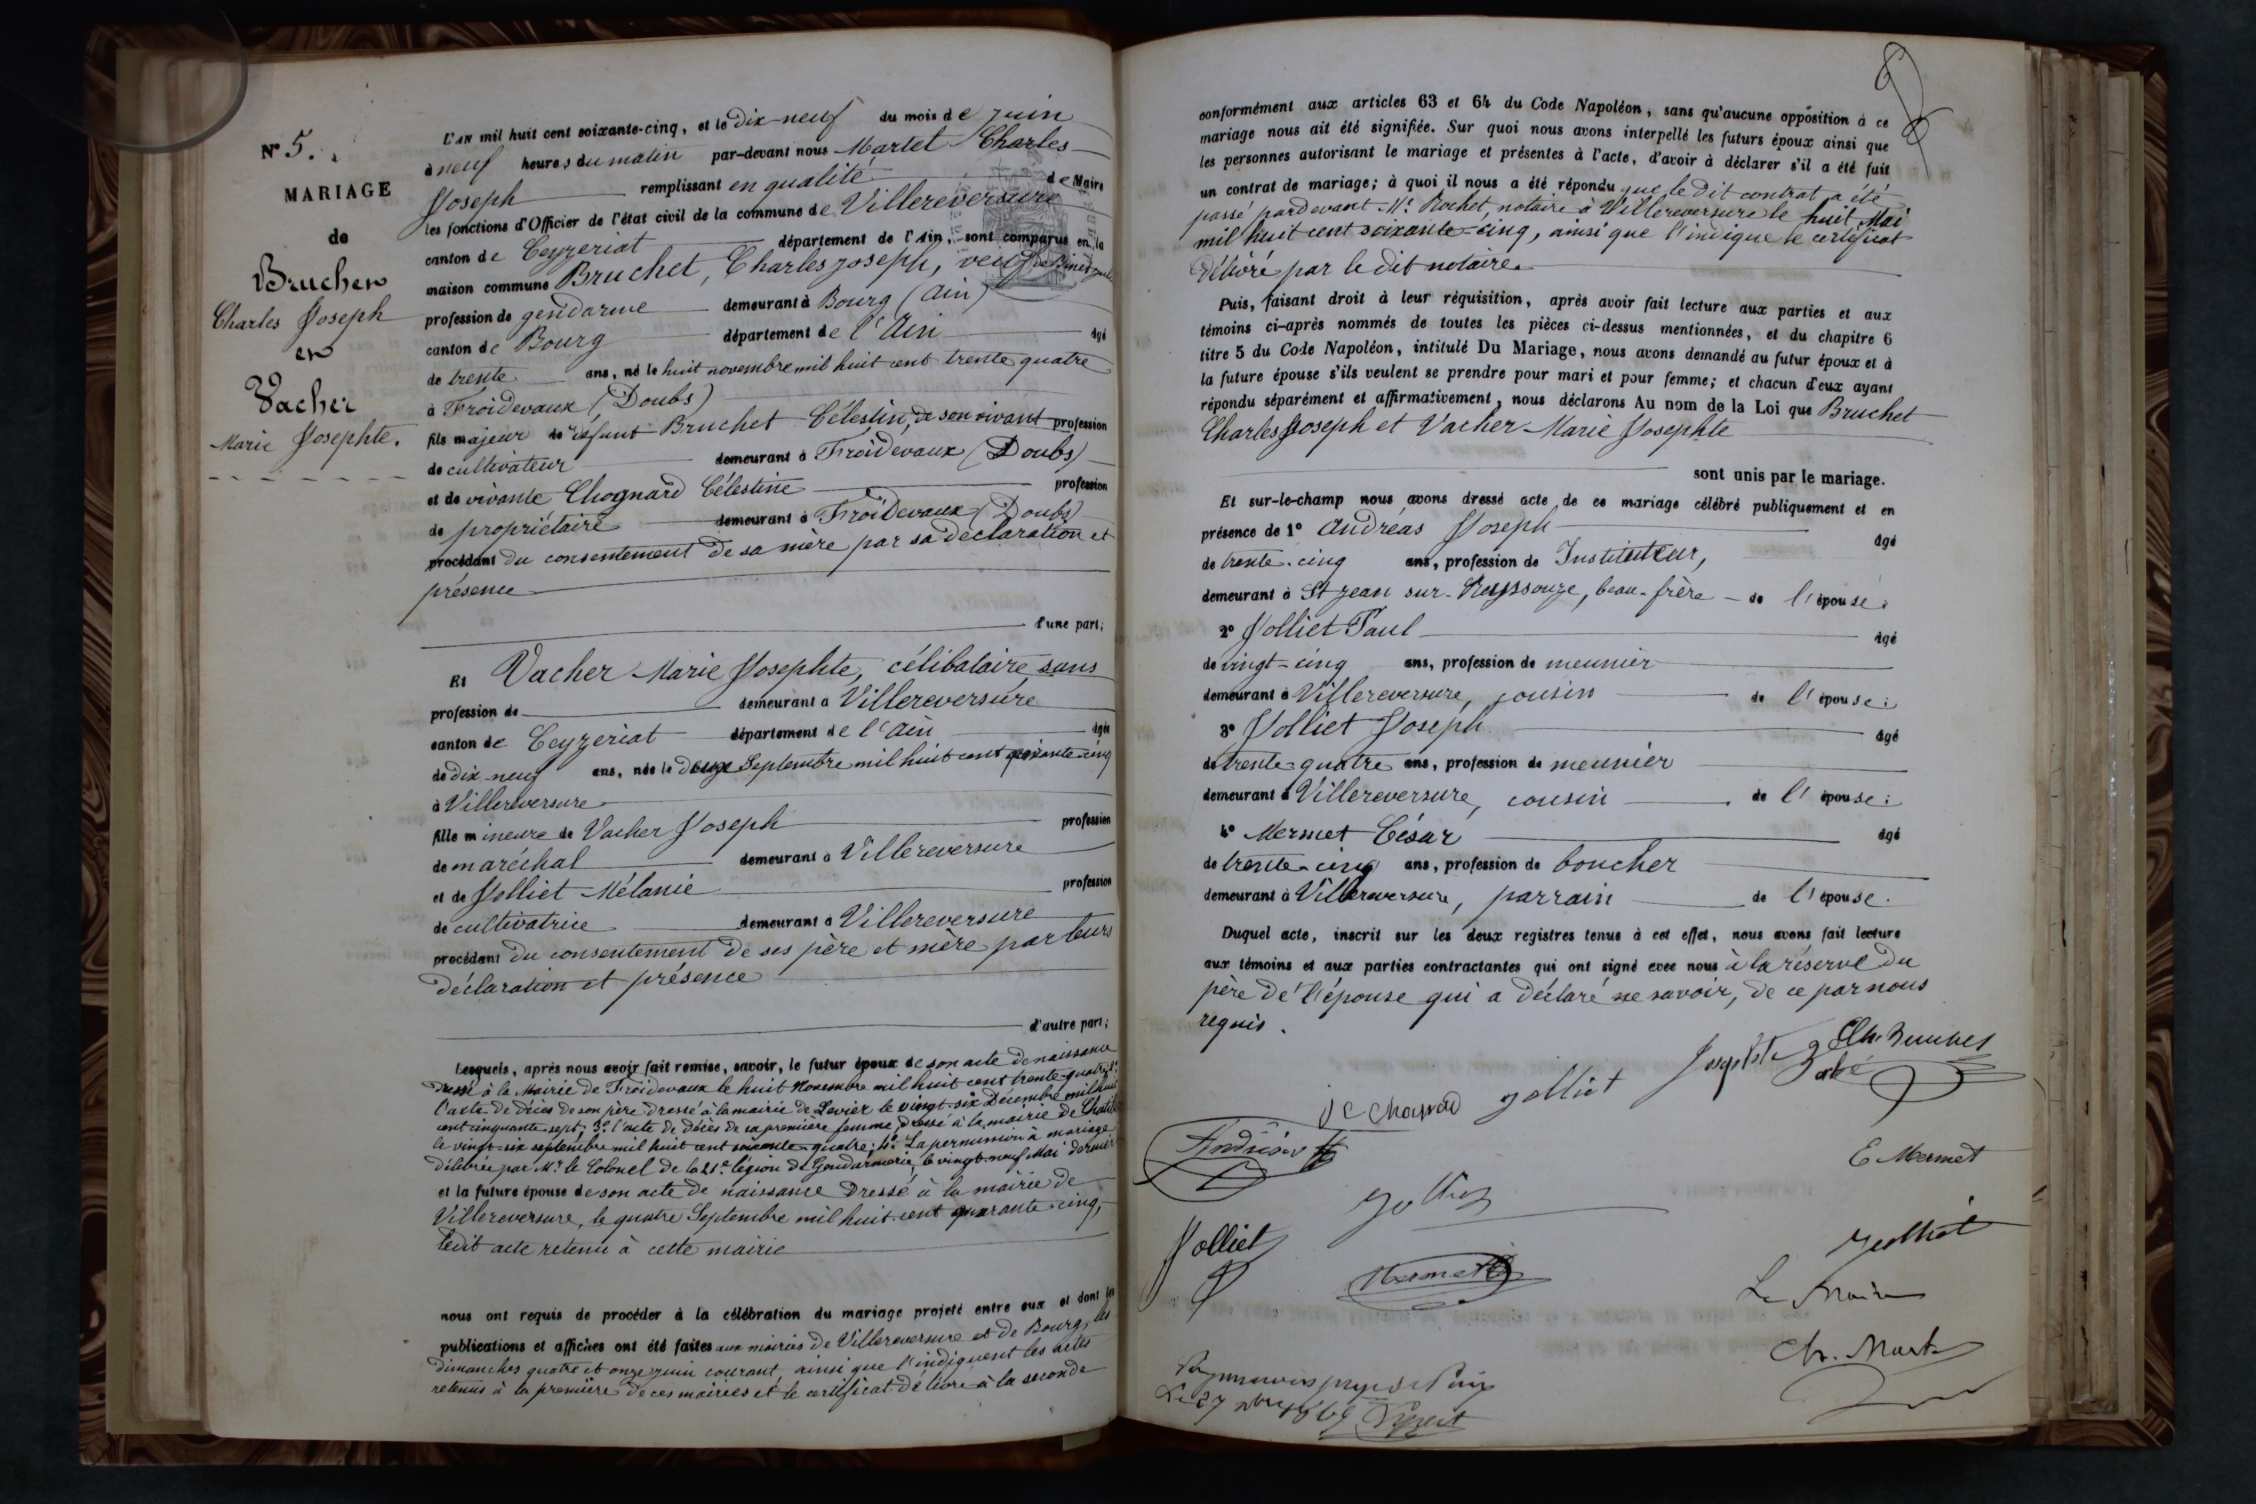 N° 5.
MARIAGE
de
Bruchet
Charles Joseph
et
Vacher
Marie Josephte.
L'AN mil huit cent soixante-cinq, et le dix-neuf du mois de juin
à neuf heures du matin par-devant nous Martet Charles
Joseph remplissant en qualité de Maire
les fonctions d'Officier de l'état civil de la commune de Villereversure
canton de Ceyzeriat département de l'Ain, sont comparus en la
maison commune Bruchet, Charles joseph, veuf de
profession de gendarme demeurant à Bourg (Ain)
canton de Bourg département de l'Ain âgé
de trente ans, né le huit novembre mil huit cent trente quatre
à Froidevaux (Doubs)
fils majeur de défunt Bruchet Célestin, de son vivant profession
de cultivateur demeurant à Froidevaux (Doubs)
et de vivante Chognard Célestine profession
de propriétaire demeurant à Froidevaux (Doubs)
procédant du consentement de sa mère par sa déclaration et
présence
d'une part;
Et Vacher Marie Josephte, célibataire sans
profession de demeurant à Villereversure
canton de Ceyzeriat département de l'Ain âgée
de dix-neuf ans, née le Septembre mil huit cent quarante-cinq
à Villereversure
fille mineure de Vacher Joseph profession
de maréchal demeurant à Villereversure
et de Jolliet Mélanie profession
de cultivatrice demeurant à Villereversure
procédant du consentement de ses père et mère par leurs
déclaration et présence
d'autre part;
Lesquels, après nous avoir fait remise, savoir, le futur époux de son acte de naissance
dressé à la Mairie de Froidevaux le huit Novembre mil huit cent trente-quatre; 2°
l'acte de décès de son père dressé à la mairie de Levier le vingt-six Décembre mil huit
cent cinquante sept; 3° l'acte de décès de sa première femme, dressé à la mairie de
le vingt-six septembre mil huit cent soixante-quatre; 4° La permission à mariage
délivrée par Mr. le Colonel de la 21e légion de Gendarmerie, le vingt-neuf Mai dernier
et la future épouse de son acte de naissance dressé à la mairie de
Villereversure, le quatre Septembre mil huit cent quarante-cinq,
ledit acte retenu à cette mairie
nous ont requis de procéder à la célébration du mariage projeté entre eux et dont les
publications et affiches ont été faites aux mairies de Villereversure et de Bourg, les
dimanches quatre et onze juin courant, ainsi que l'indiquent les actes
retenus à la première de ces mairies et le certificat délivré à la seconde
conformément aux articles 63 et 64 du Code Napoléon, sans qu'aucune opposition à ce
mariage nous ait été signifiée. Sur quoi nous avons interpellé les futurs époux ainsi que
les personnes autorisant le mariage et présentes à l'acte, d'avoir à déclarer s'il a été fait
un contrat de mariage; à quoi il nous a été répondu que le dit contrat a été
passé pardevant Me. Rochet, notaire à Villereversure le huit Mai
mil huit cent soixante-cinq, ainsi que l'indique le certificat
délivré par le dit notaire.
Puis, faisant droit à leur réquisition, après avoir fait lecture aux parties et aux
témoins ci-après nommés de toutes les pièces ci-dessus mentionnées, et du chapitre 6
titre 5 du Code Napoléon, intitulé Du Mariage, nous avons demandé au futur époux et à
la future épouse s'ils veulent se prendre pour mari et pour femme; et chacun d'eux ayant
répondu séparément et affirmativement, nous déclarons Au nom de la Loi que Bruchet
Charles Joseph et Vacher Marie Josephte
sont unis par le mariage.
Et sur-le-champ nous avons dressé acte de ce mariage célébré publiquement et en
présence de 1° Andréas Joseph âgé
de trente-cinq ans, profession de Instituteur,
demeurant à St jean sur-Reyssouze, beau-frère de l'épouse.
2° Jolliet Paul âgé
de vingt-cinq ans, profession de meunier
demeurant à Villereversure, cousin de l'épouse;
3° Jolliet Joseph âgé
de trente-quatre ans, profession de meunier
demeurant à Villereversure, cousin de l'épouse;
4° Mermet César âgé
de trente-cinq ans, profession de boucher
demeurant à Villereversure, parrain de l'épouse.
Duquel acte, inscrit sur les deux registres tenus à cet effet, nous avons fait lecture
aux témoins et aux parties contractantes qui ont signé avec nous à la réserve du
père de l'épouse qui a déclaré ne savoir, de ce par nous
requis.
Jolliet
E Mermet
Jolliet
Mermet
Le Maire
Ch. Martet